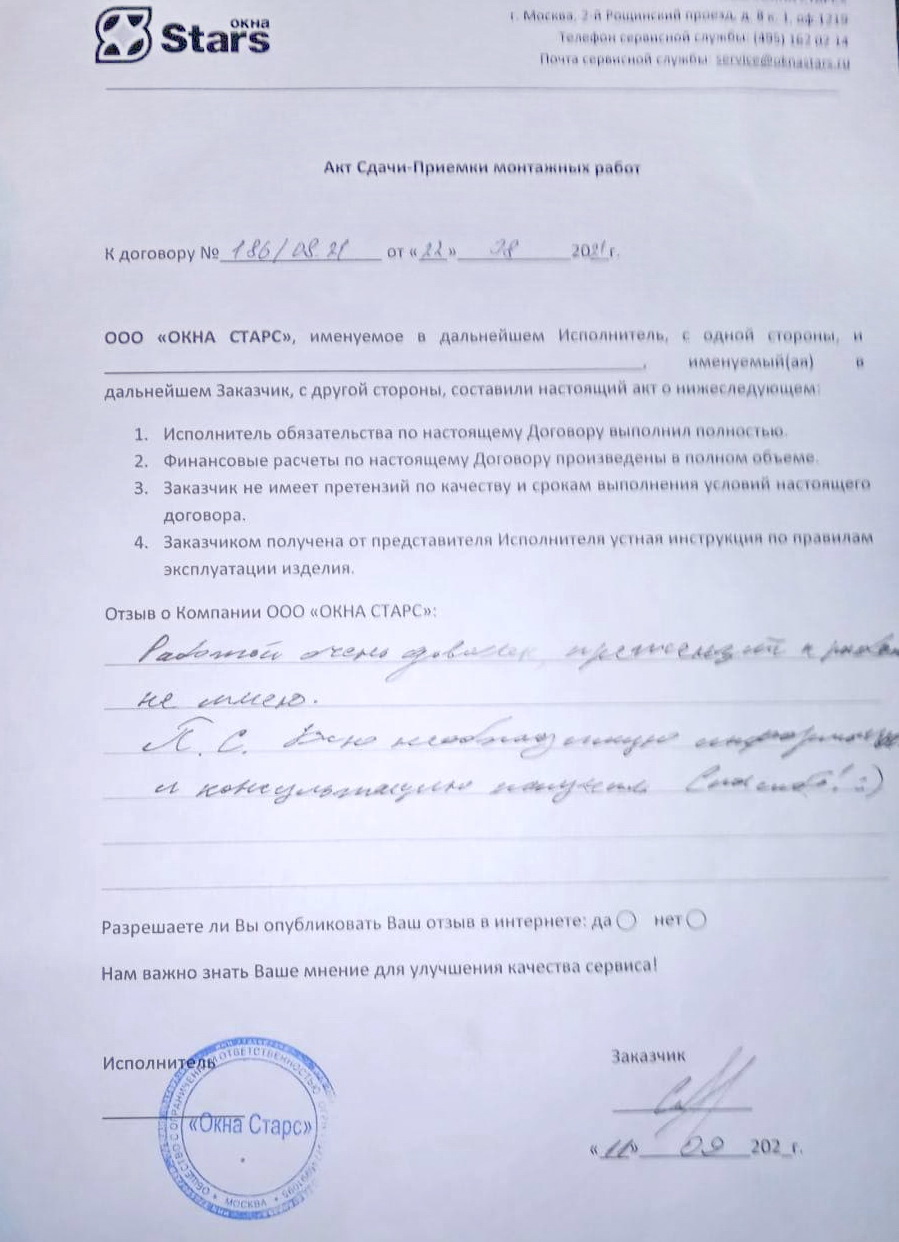 ОКНА
Stars
г. Москва, 2-й Рощинский проезд, д. 8 к. 1, оф 1219
Телефон сервисной службы: (495) 162 02 14
Почта сервисной службы: service@oknastars.ru
Акт Сдачи-Приемки монтажных работ
К договору № 186/08.21 от «22» 08 2021г.
ООО «ОКНА СТАРС», именуемое в дальнейшем Исполнитель, с одной стороны, и
, именуемый(ая) в
дальнейшем Заказчик, с другой стороны, составили настоящий акт о нижеследующем:
1. Исполнитель обязательства по настоящему Договору выполнил полностью.
2. Финансовые расчеты по настоящему Договору произведены в полном объеме.
3. Заказчик не имеет претензий по качеству и срокам выполнения условий настоящего
договора.
4. Заказчиком получена от представителя Исполнителя устная инструкция по правилам
эксплуатации изделия.
Отзыв о Компании ООО «ОКНА СТАРС»:
Работой очень доволен, претензий к
не имею.
П. С. Всю необходимую
и консультацию получил. Спасибо! :)
Разрешаете ли Вы опубликовать Ваш отзыв в интернете: да нет
Нам важно знать Ваше мнение для улучшения качества сервиса!
Исполнитель
Заказчик
ОБЩЕСТВО С ОГРАНИЧЕННОЙ ОТВЕТСТВЕННОСТЬЮ
«Окна Старс»
МОСКВА
«11» 09 202_г.